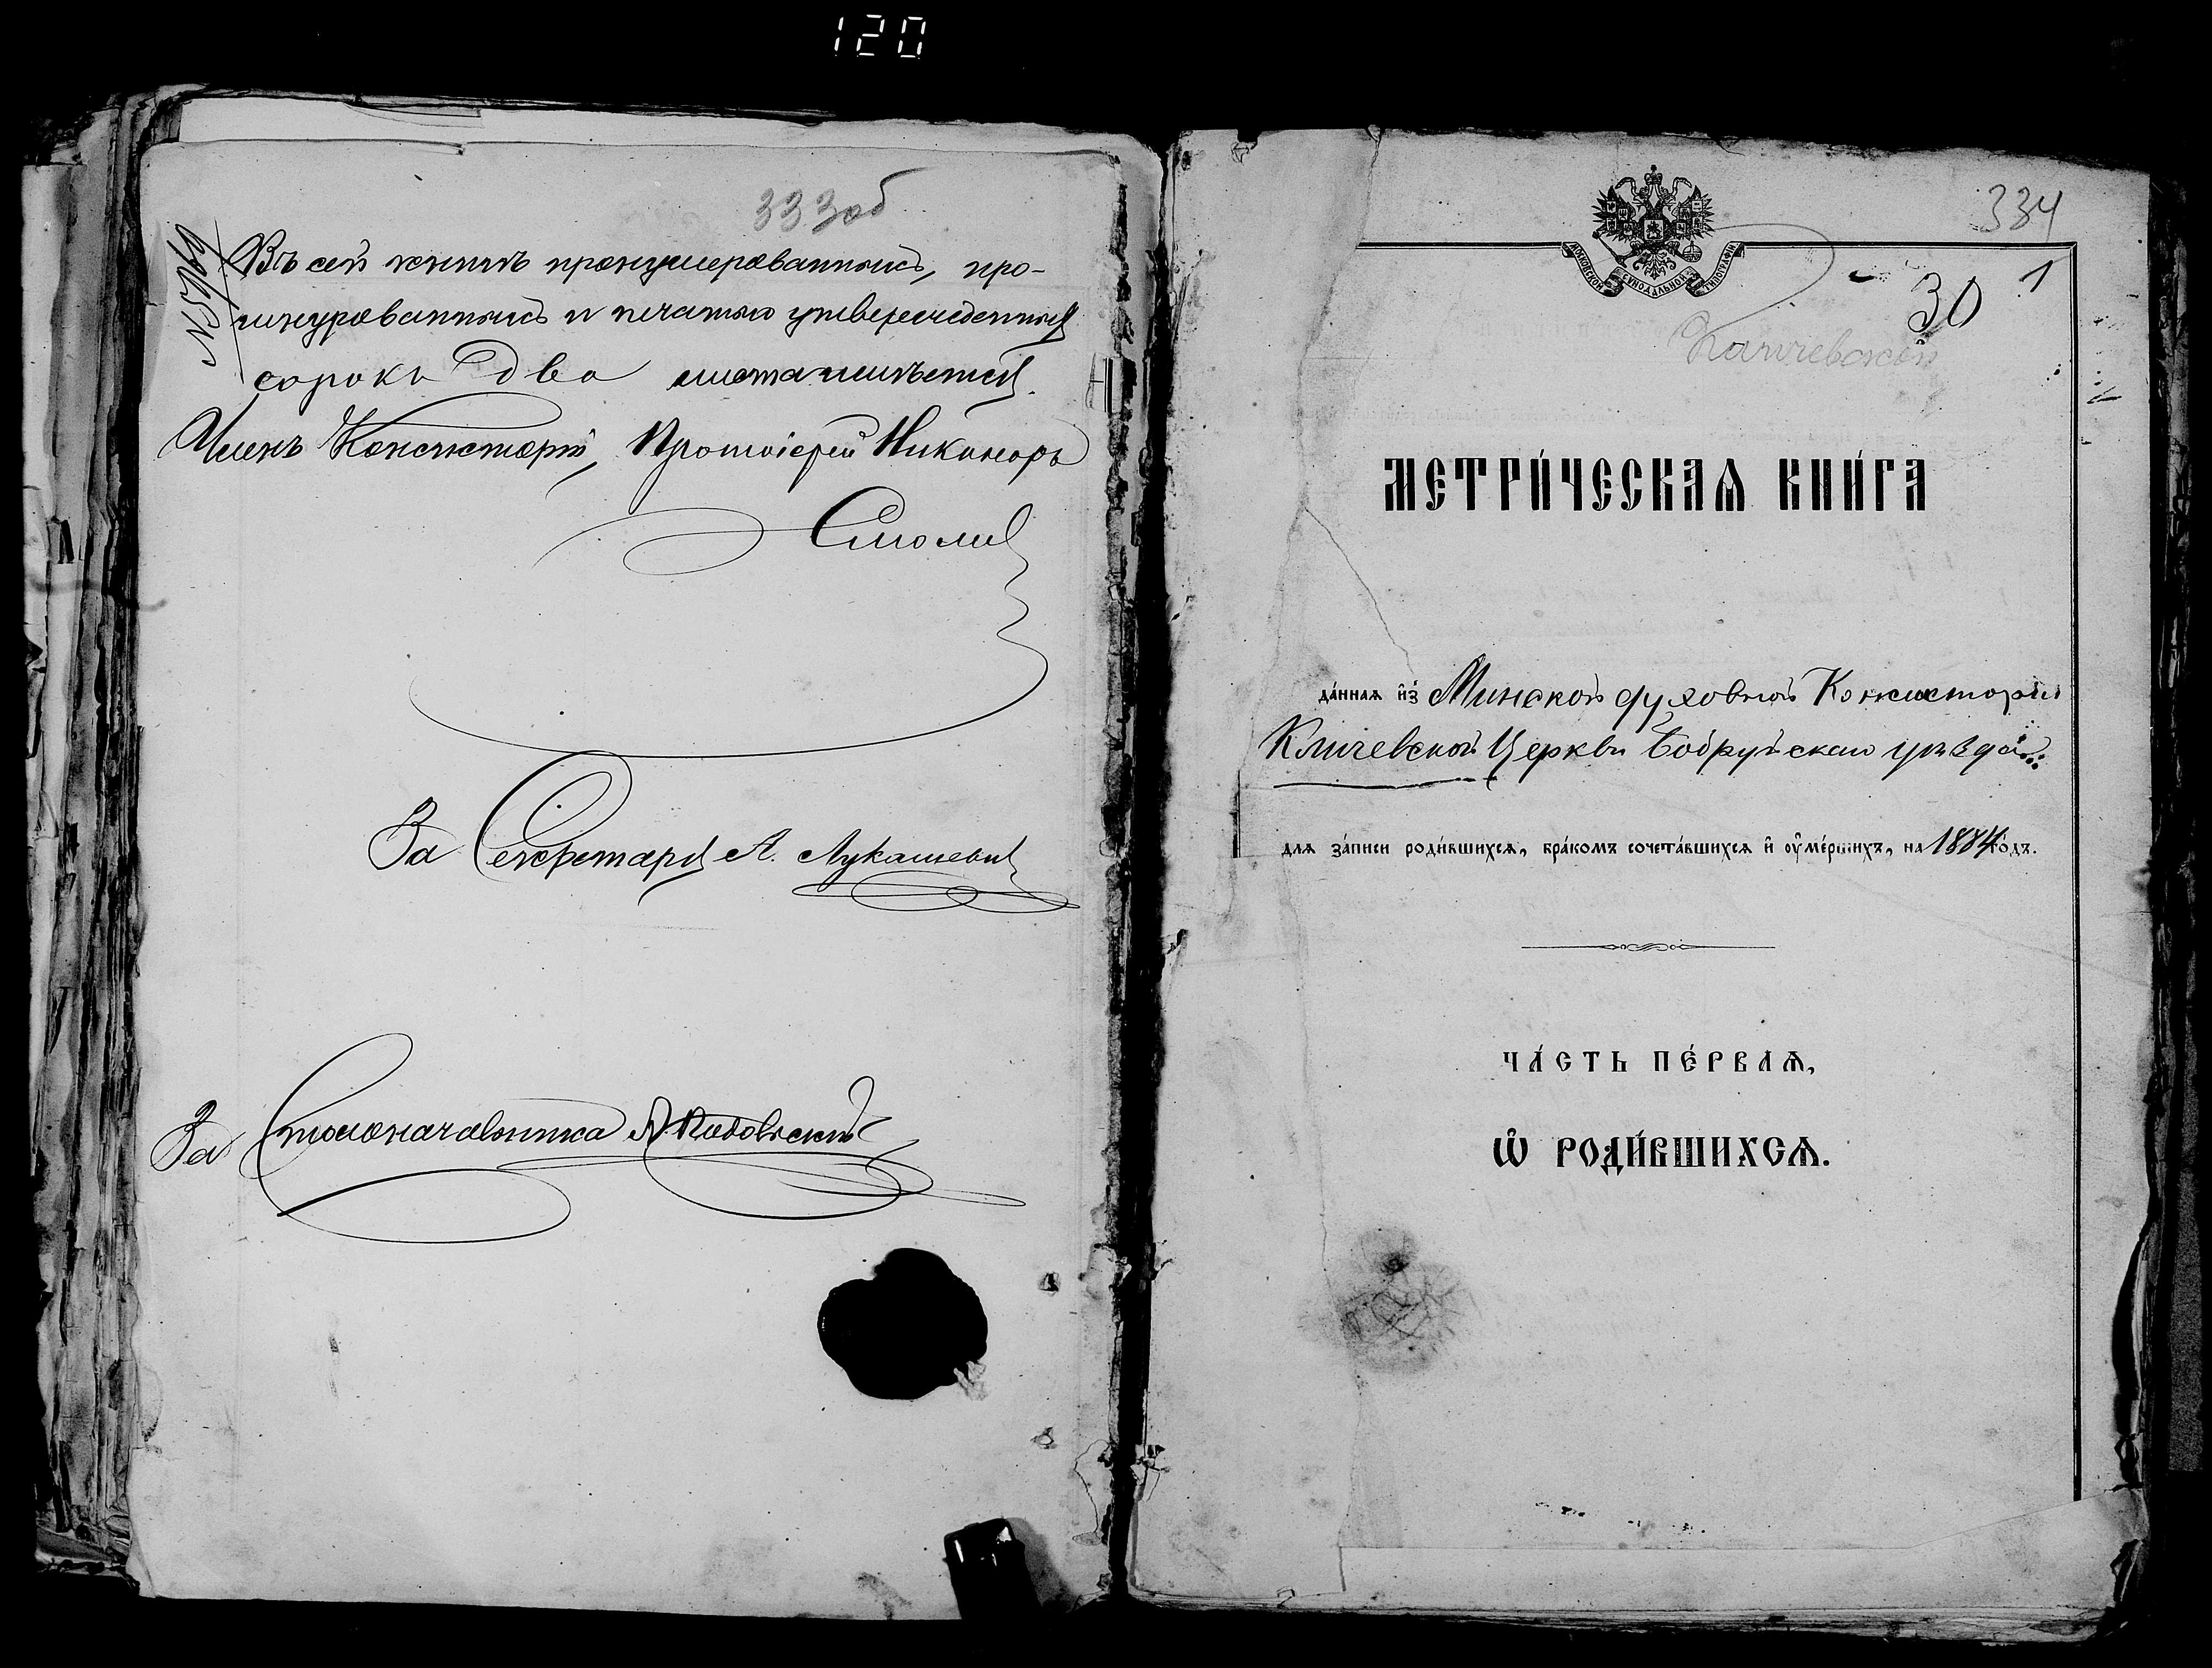 120
333об
№ 5769
Въ сей книгѣ пронумерованныхъ, про-
шнурованныхъ и печатью утвержденныхъ
сорокъ два листа имѣется.
Членъ Консисторіи, Протоіерей Никаноръ
Смолич
За Секретаря А. Лукашевич
За Столоначальника А.
334
МОСКОВСКОЙ СѴНОДАЛЬНОЙ ТИПОГРАФІИ
30 1
МЕТРИ́ЧЕСКАѦ КНИ́ГА
да́ннаѧ и҆з̾ Минской духовной Консисторіи
Кличевской Церкви Бобруйскаго уѣзда
длѧ за́писи роди́вшихсѧ, бра́комъ сочета́вшихсѧ и҆ ᲂу҆ме́ршихъ, на 1884 го́дъ.
ЧА́СТЬ ПЕ́РВАѦ,
Ѡ҆ РОДИ́ВШИХСѦ.